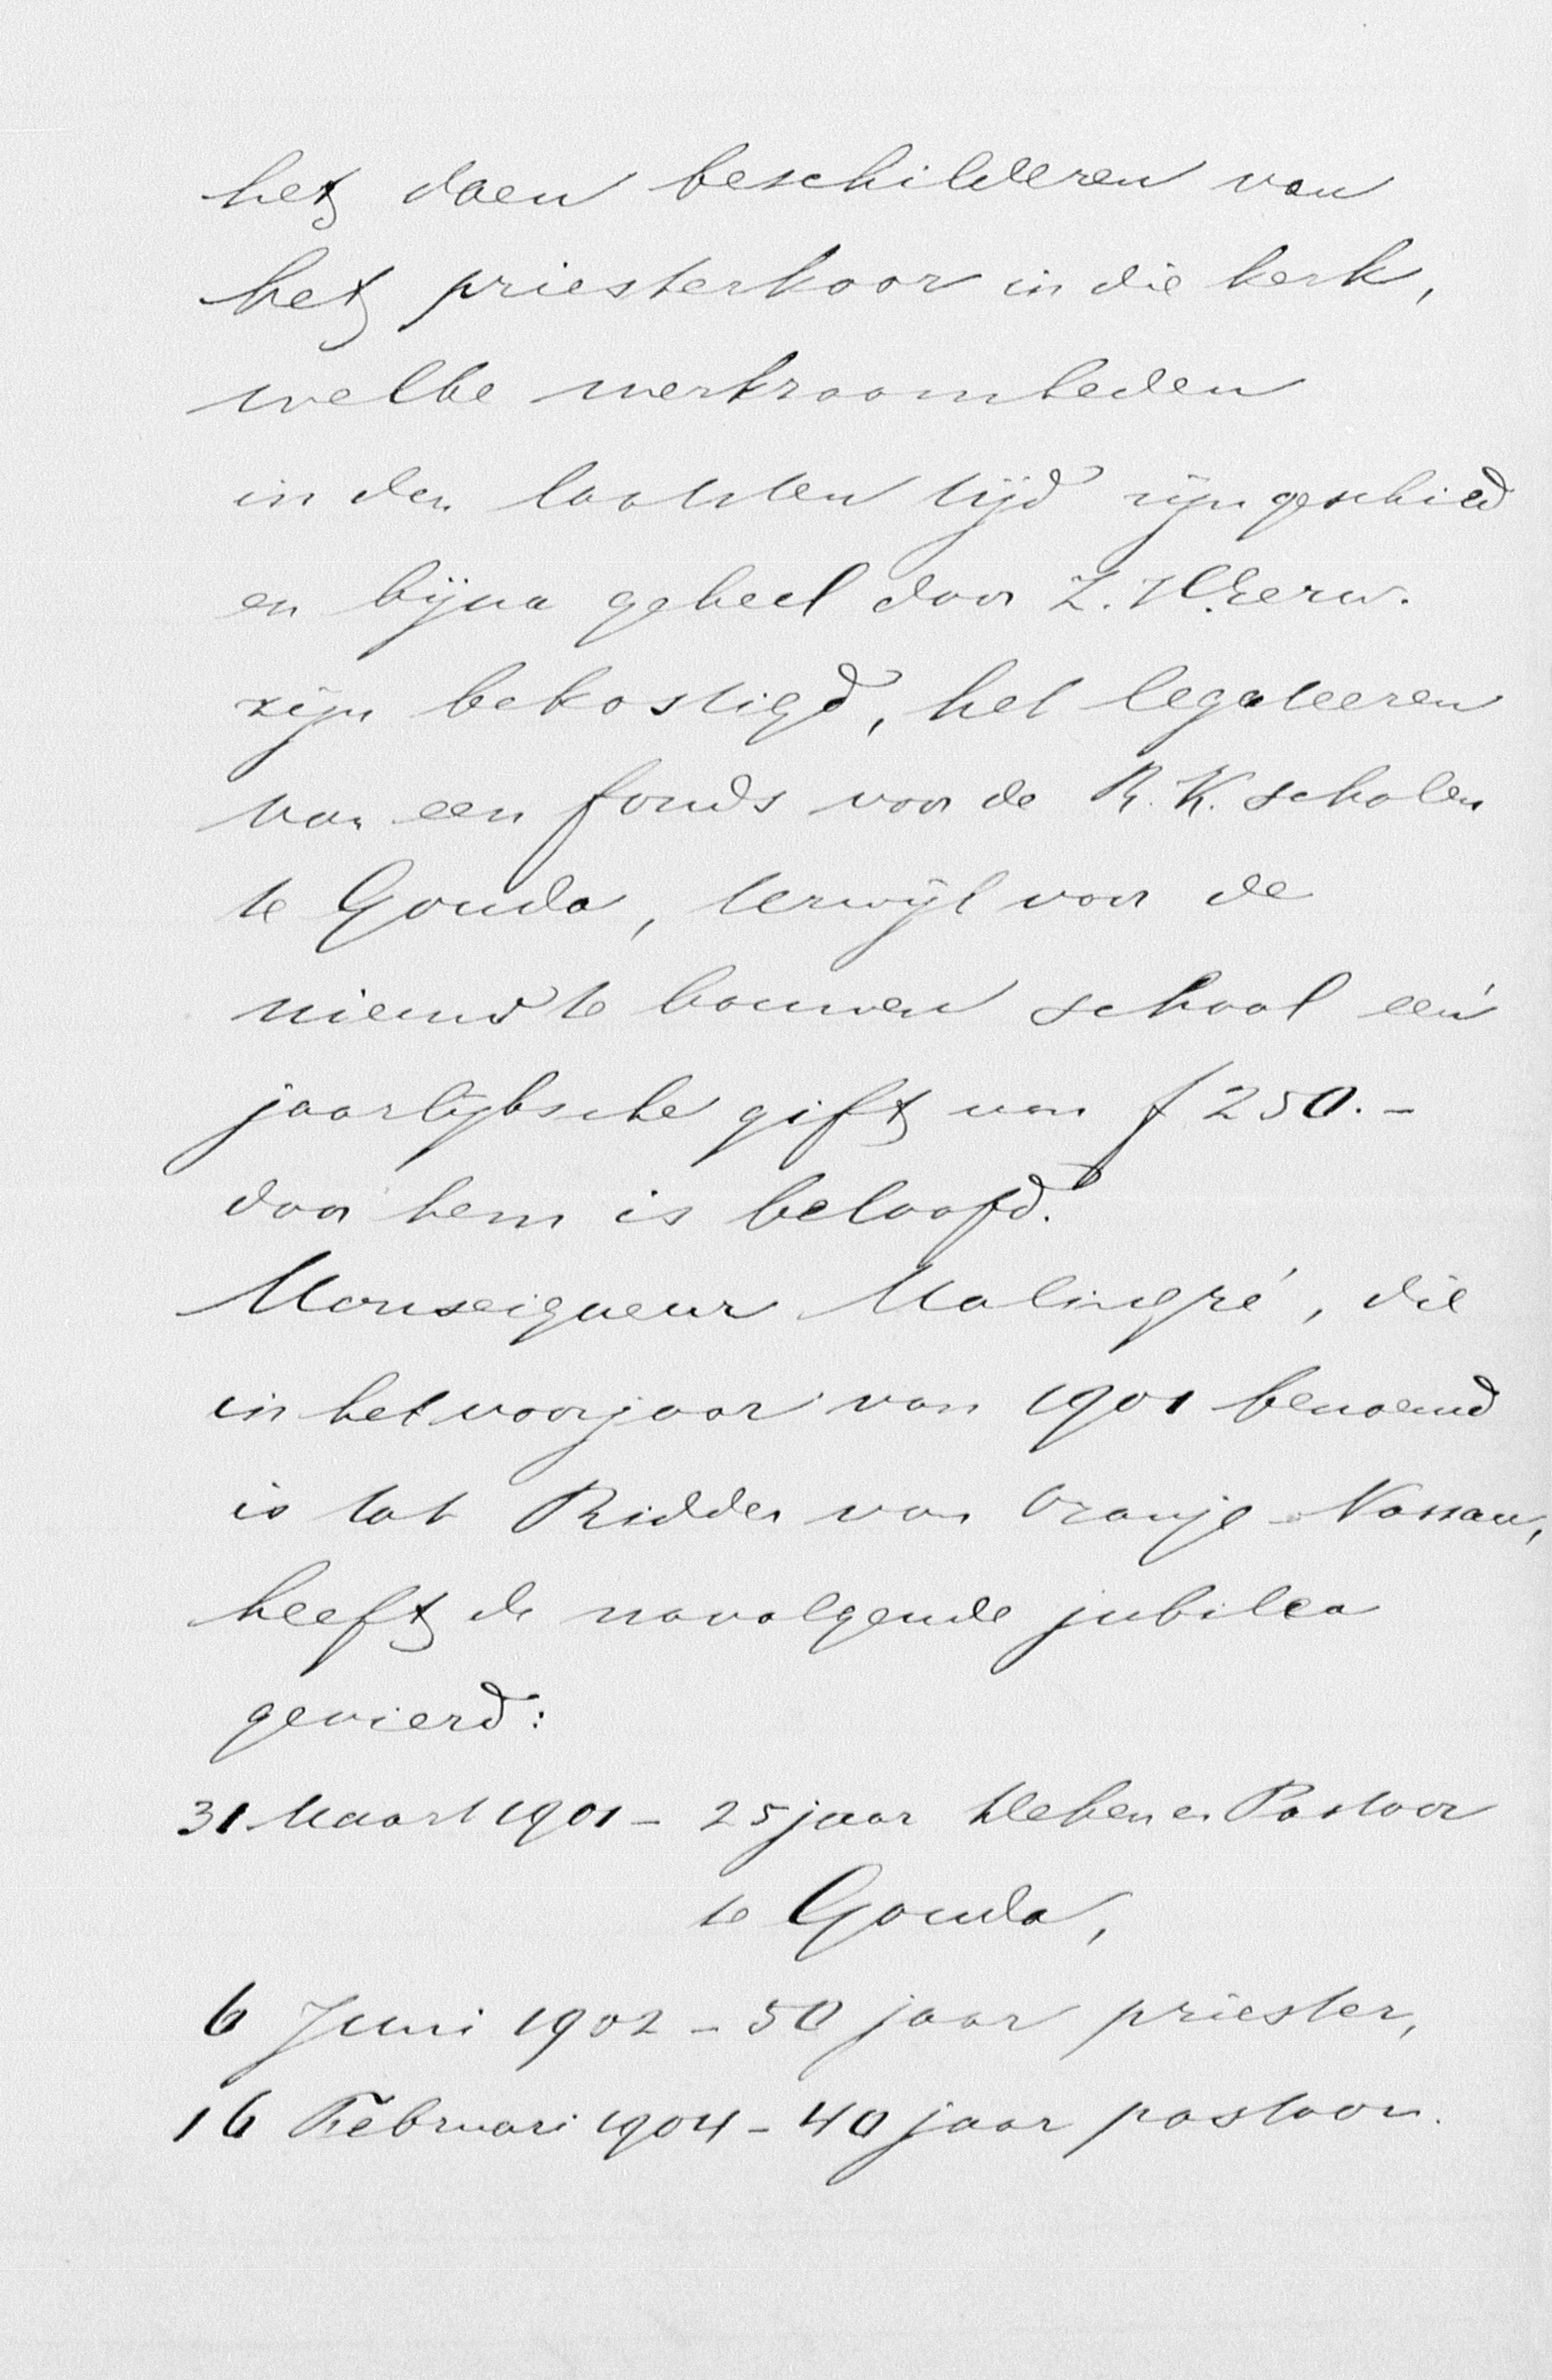 het doen beschilderen van
het priesterkoor in die kerk,
welke werkzaamheden
in den laatsten tijd zijn geschied
en bijna geheel door Z. H.Eerw.
zijn bekostigd, het legateeren
van een fonds voor de R. K. scholen
te Gouda, terwijl voor de
nieuw te bouwen school een
jaarlijksche gift van f 250.-
door hem is beloofd.
Monseigneur Malingré, die
in het voorjaar van 1901 benoemd
is tot Ridder van Oranje-Nassau,
heeft de navolgende jubilea
gevierd:
31 Maart 1901 - 25 jaar Deken en Pastoor
te Gouda,
6 Juni 1902 - 50 jaar priester,
16 Februari 1904 - 40 jaar pastoor.